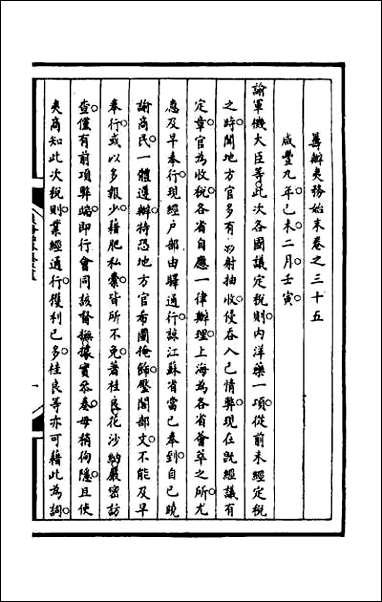 籌辦夷務始末卷之三十五
咸豐九年己未二月壬寅
諭軍機大臣等此次各國議定稅則內洋藥一項從前未經定稅
之時聞地方官多有影射抽收侵吞入己情弊現在既經議有
定章官為收稅各省自應一律辦理上海為各省薈萃之所尤
應及早奉行現經戶部由驛通行諒江蘇省當已奉到自己曉
諭商民一體遵辦特恐地方官希圖掩飾壓閣部文不能及早
奉行或以多報少藉肥私橐皆所不免著桂良花沙納嚴密訪
查僅有前項弊端即行會同該督撫據實參奏毋稍徇隱且使
夷商知此次稅則業經通行獲利已多桂良等亦可藉此為詞
一